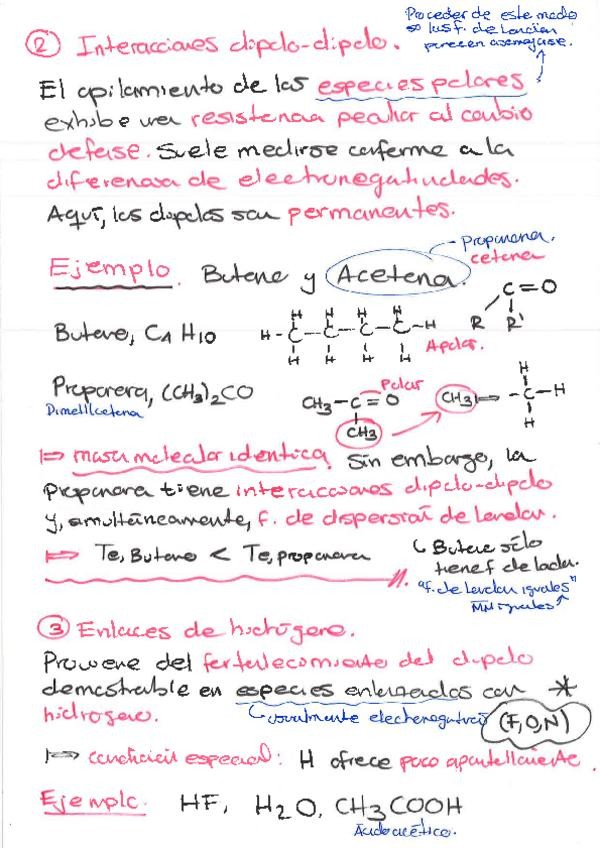 Proceder de este modo
so las f. de London
parecen asemejarse.
② Interacciones dipolo-dipolo.
El apilamiento de las especies polares
exhibe una resistencia peculiar al cambio
de fase. Suele medirse conforme a la
diferencia de electronegatividades.
Aquí, los dipolos son permanentes.
Propanona,
cetona
Ejemplo. Butano y Acetona.
C=O
R R'
Butano, C4H10
H H H H
H-C-C-C-C-H
H H H H
Apolar.
Propanona, (CH3)2CO
Dimetilcetona
Polar
CH3-C=O
CH3
CH3
H
-C-H
H
masa molecular idéntica. Sin embargo, la
Propanona tiene interacciones dipolo-dipolo
y, simultáneamente, f. de dispersión de London.
Te, Butano < Te, propanona
Butano sólo
tiene f. de London.
"f. de London iguales"
MM iguales
③ Enlaces de hidrógeno.
Proviene del fortalecimiento del dipolo
demostrable en especies enlazadas con *
hidrógeno.
usualmente electronegativas
(F,O,N)
condición especial: H ofrece poco apantallamiento.
Ejemplo. HF, H2O, CH3COOH
Ácido acético.